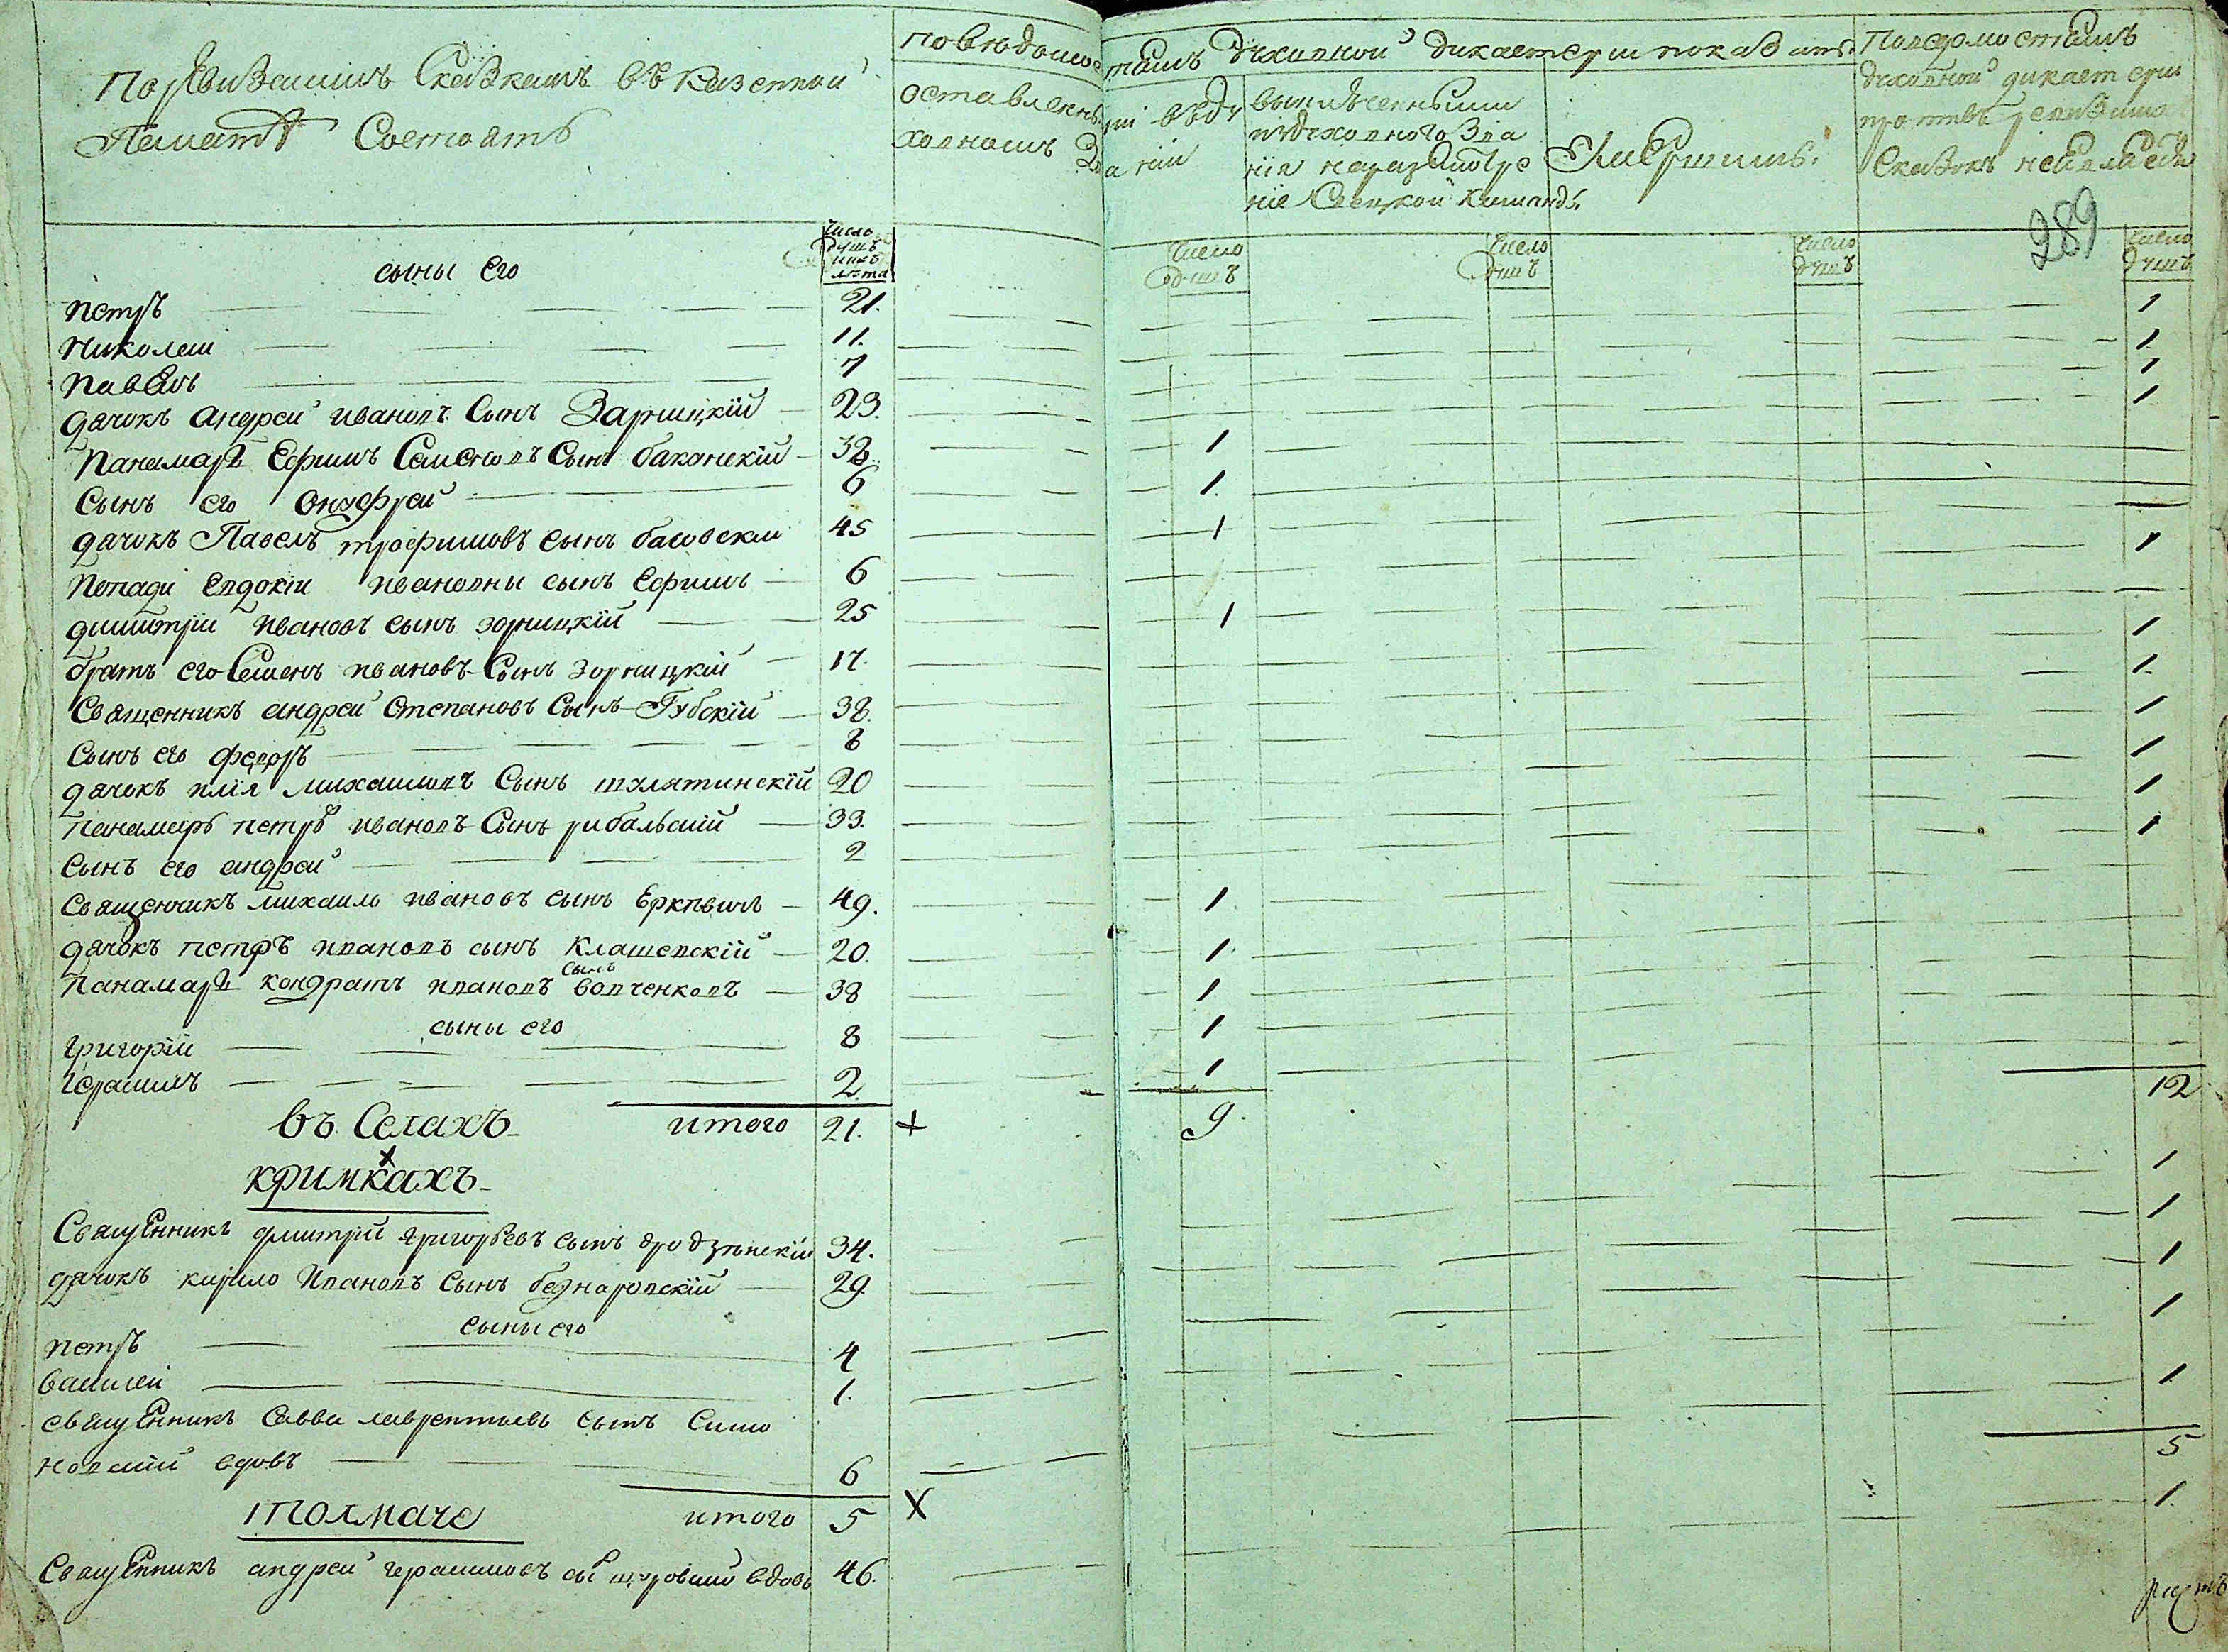 По Ревизскимъ Сказкамъ въ Казенной
Палатѣ Состоятъ
По вѣдомостямъ духовной дикастеріи показаны
оставлены при
выключенными
из духовного зва
нія на разсмотре
ніе Свецкой Команды
Умершимъ
По ведомостямъ
духовной дикастеріи
противъ ревизскихъ
Сказокъ не
289
число душъ
число душъ
число душъ
число душъ
сыны его
Петръ 21. 1
Николай 11. 1
Павелъ 7 1
дячокъ андрей ивановъ Сынъ Зарницкій 23. 1
Панамарь Ефимъ Семеновъ Сынъ баканскій 32. 1
Сынъ его Онуфрей 6 1
дячокъ Павелъ трофимовъ сынъ 45 1
Попади Евдокіи ивановны сынъ Ефимъ 6 1
димитрій Ивановъ сынъ зорницкій 25 1
братъ его Семенъ ивановъ Сынъ Зорницкій 17. 1
Священникъ андрей Степановъ Сынъ Губскій 38. 1
Сынъ его федоръ 8 1
дячокъ илія михаиловъ Сынъ шулятинскій 20 1
панамарь петръ ивановъ Сынъ рибальскій 33. 1
Сынъ его андрей 2 1
Священникъ михаилъ ивановъ сынъ 49. 1
дячокъ петръ ивановъ сынъ Клашевскій 20. 1
Панамарь кондратъ ивановъ сынъ вовченковъ 38 1
сыны его
григорій 8 1
Герасимъ 2. 1
итого 21. + 9. 12
въ Селахъ
кримкахъ
Священникъ дмитрій григорьевъ сынъ 34. 1
дячокъ кирило Ивановъ Сынъ безнаровскій 29. 1
сыны его
петръ 4 1
василей 1. 1
священникъ Савва лаврентьевъ сынъ Симо
новскій вдовъ 6 1
итого 5 X 5
толмаче
Священникъ андрей герасимовъ сынъ вдовъ 46. 1.